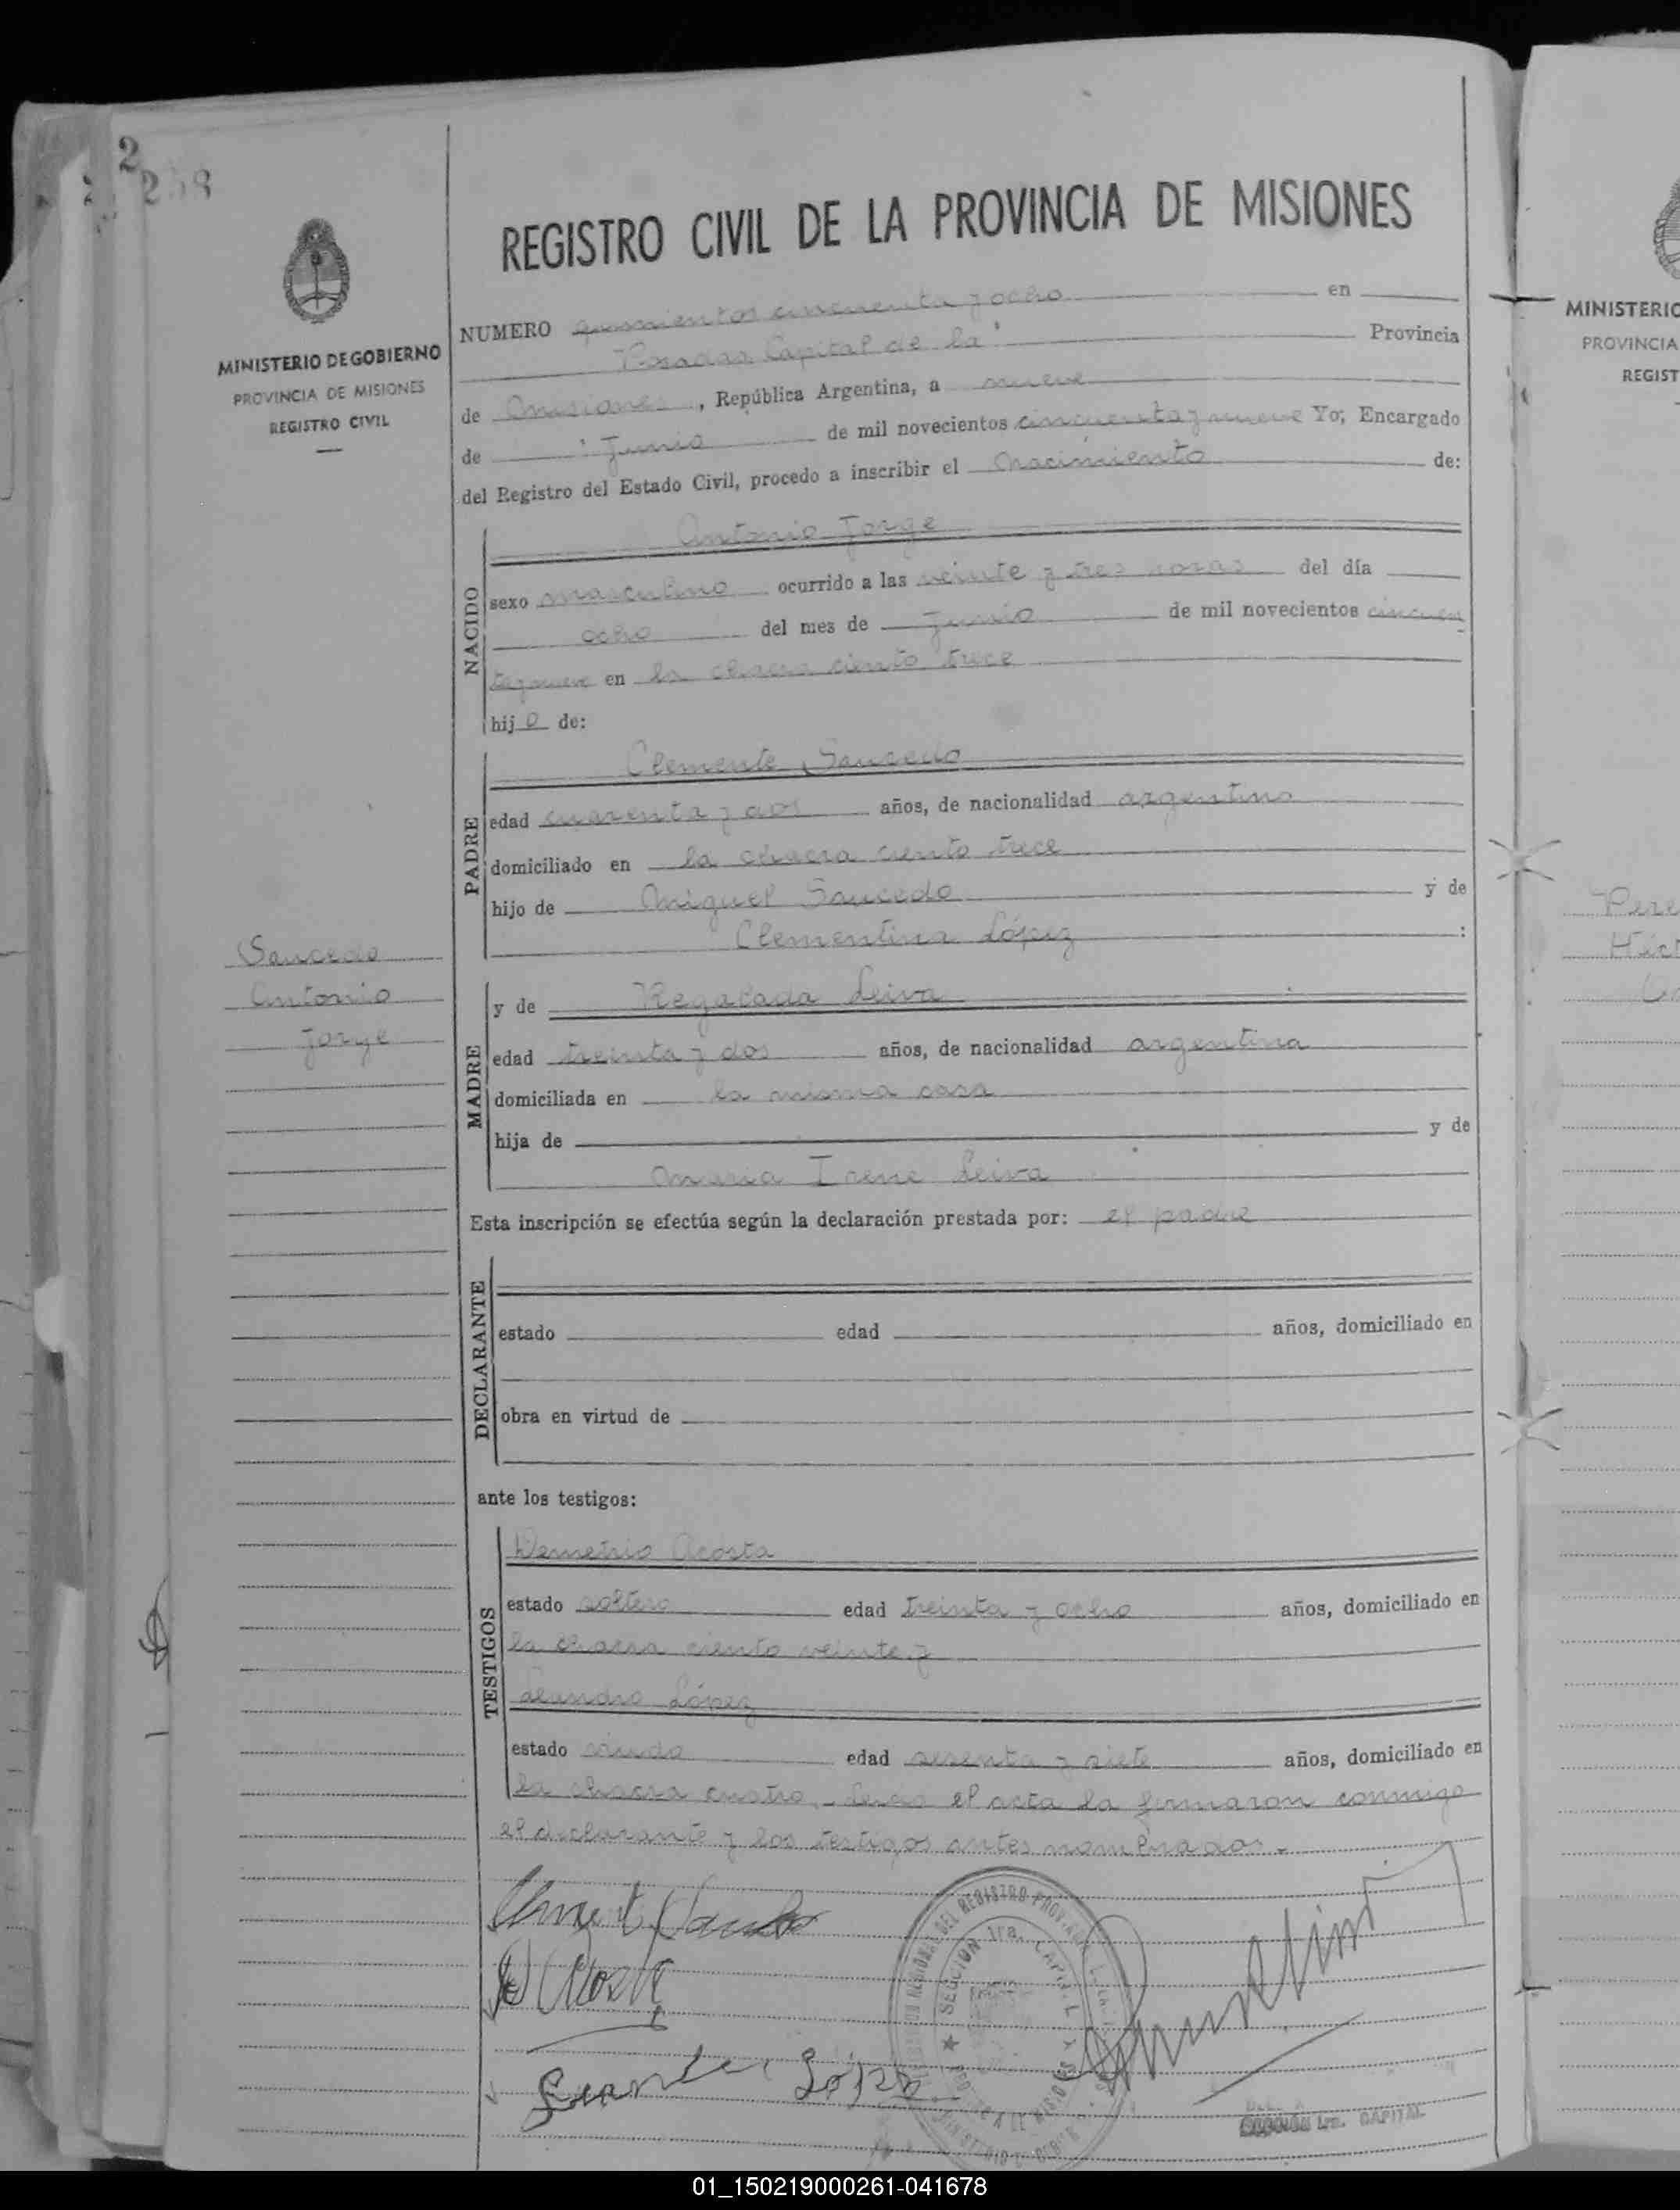 2
258
MINISTERIO DE GOBIERNO
PROVINCIA DE MISIONES
REGISTRO CIVIL
Saucedo
Antonio
Jorge
REGISTRO CIVIL DE LA PROVINCIA DE MISIONES
NUMERO quinientos cincuenta y ocho en
Posadas Capital de la Provincia
de Misiones, República Argentina, a nueve
de Junio de mil novecientos cincuenta y nueve Yo, Encargado
del Registro del Estado Civil, procedo a inscribir el nacimiento de:
NACIDO
Antonio Jorge
sexo masculino ocurrido a las veinte y tres horas del día
ocho del mes de Junio de mil novecientos cincuen
ta y nueve en la chacra ciento trece
hijo de:
PADRE
Clemente Saucedo
edad cuarenta y dos años, de nacionalidad argentino
domiciliado en la chacra ciento trece
hijo de Miguel Saucedo y de
Clementina López :
MADRE
y de Regalada Leiva
edad treinta y dos años, de nacionalidad argentina
domiciliada en la misma casa
hija de y de
Maria Irene Leiva
Esta inscripción se efectúa según la declaración prestada por: el padre
DECLARANTE
estado edad años, domiciliado en
obra en virtud de
ante los testigos:
TESTIGOS
Demetrio Acosta
estado soltero edad treinta y ocho años, domiciliado en
la chacra ciento veinte y
Leandro López
estado viudo edad sesenta y siete años, domiciliado en
la chacra cuatro.- Leida el acta la firmaron conmigo
el declarante y los testigos antes nombrados.-
Clemente Saucedo
D Acosta
Leandro López
SECCION 1ra. CAPITAL
SECCIÓN 1ra. CAPITAL
MINISTERIO
PROVINCIA
REGIST
Pere
Héct
01_150219000261-041678